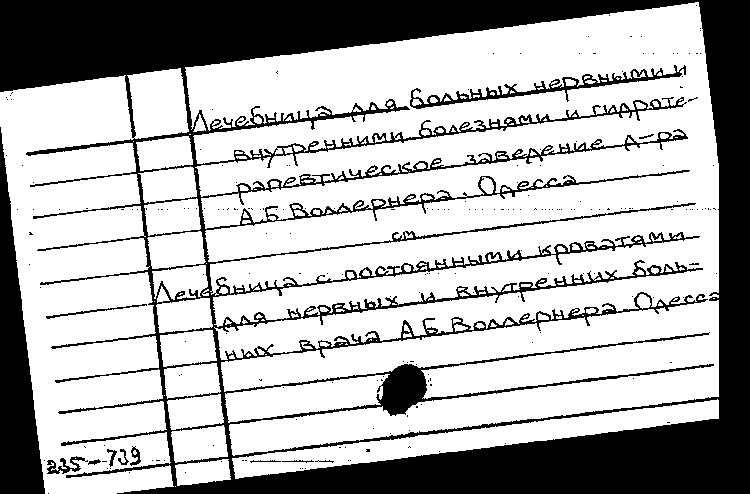 Лечебница для больных нервными и
внутренними болезнями и гидроте-
рапевтическое заведение д-ра
А.Б. Воллернера. Одесса
см
Лечебница с постоянными кроватями
для нервных и внутренних боль=
ных врача А.Б. Воллернера. Одесса
235-739